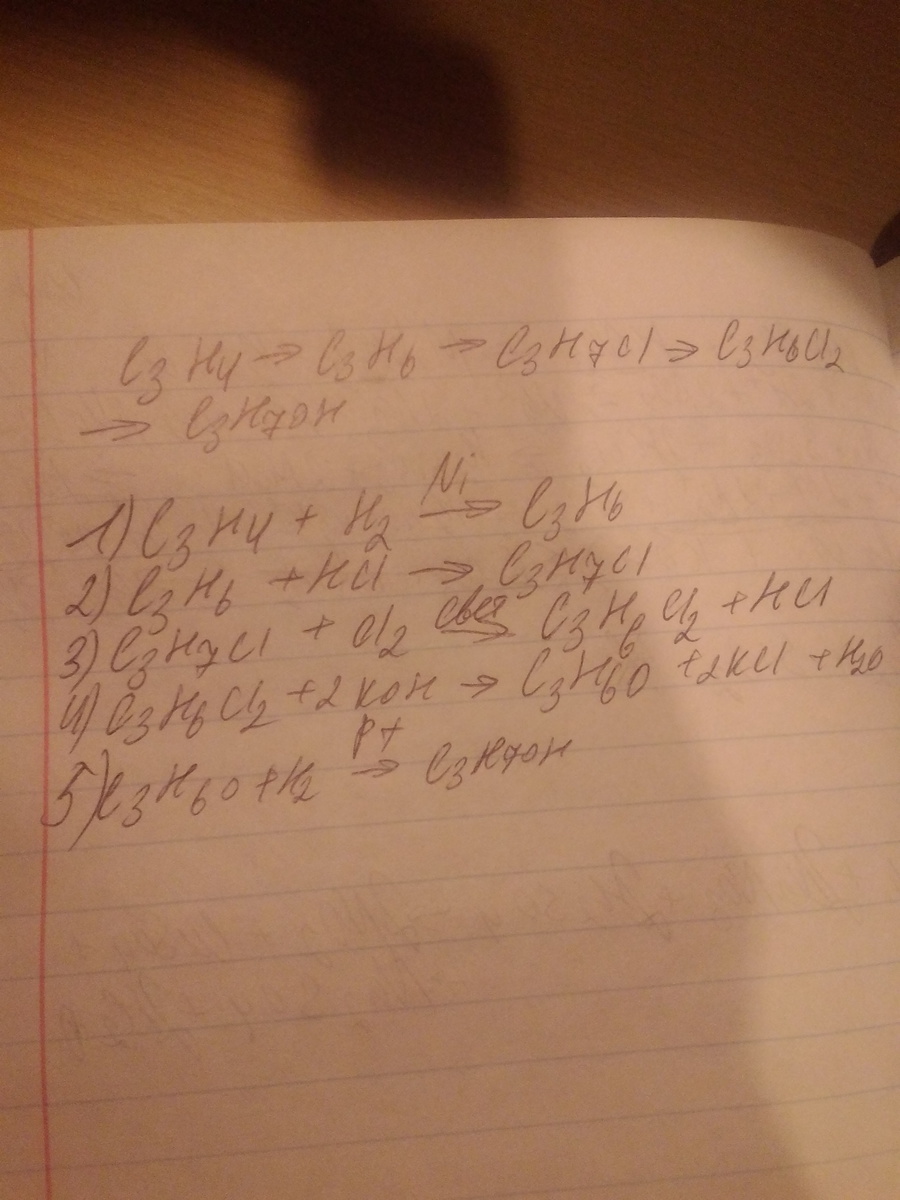 C3H4 → C3H6 → C3H7Cl → C3H6Cl2
→ C3H7OH
1) C3H4 + H2 Ni→ C3H6
2) C3H6 + HCl → C3H7Cl
3) C3H7Cl + Cl2 свет→ C3H6Cl2 + HCl
4) C3H6Cl2 + 2KOH → C3H6O + 2KCl + H2O
5) C3H6O + H2 Pt→ C3H7OH